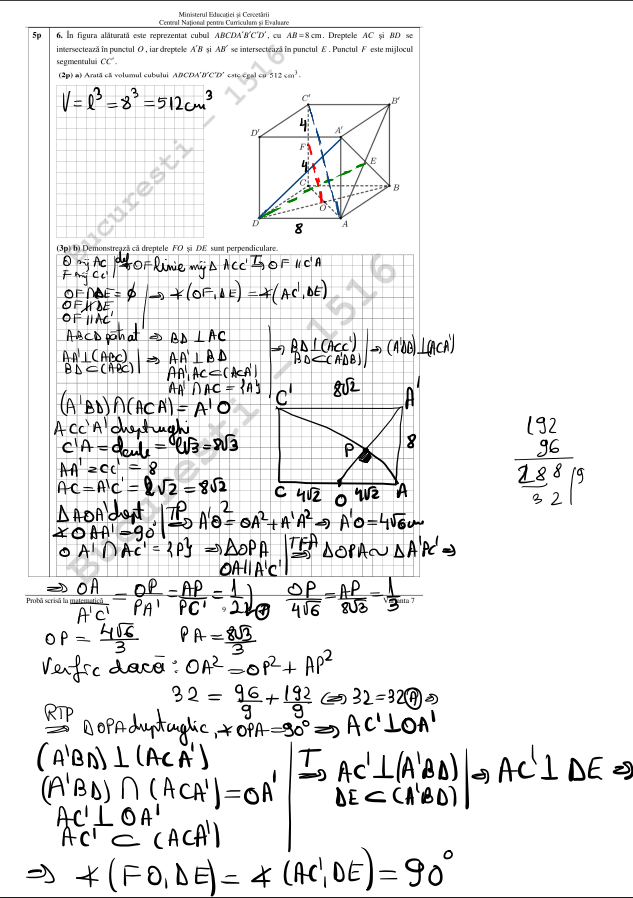 Ministerul Educației și Cercetării
Centrul Național pentru Curriculum și Evaluare
5p 6. În figura alăturată este reprezentat cubul ABCDA'B'C'D', cu AB = 8 cm. Dreptele AC și BD se
intersectează în punctul O, iar dreptele A'B și AB' se intersectează în punctul E. Punctul F este mijlocul
segmentului CC'.
(2p) a) Arată că volumul cubului ABCDA'B'C'D' este egal cu 512 cm³.
V = l³ = 8³ = 512 cm³
C' B'
4
D' A'
F
4 E
C B
O
D 8 A
București - 1516
(3p) b) Demonstrează că dreptele FO și DE sunt perpendiculare.
O mij AC | def
F mij CC' | ⇒ OF linie mij Δ ACC' T⇒ OF ∥ C'A
OF∩DE = ∅ | ⇒ ∢(OF, DE) = ∢(AC', DE)
OF ∦ DE
OF ∥ AC'
ABCD pătrat ⇒ BD ⊥ AC
AA' ⊥ (ABC) | ⇒ AA' ⊥ BD
BD ⊂ (ABC) | AA', AC ⊂ (ACA')
AA' ∩ AC = {A}
⇒ BD ⊥ (ACC') | ⇒ (A'DB) ⊥ (ACA')
BD ⊂ (A'DB)
(A'BD) ∩ (ACA') = A'O
ACC'A' dreptunghi
C'A = l√3 = 8√3
AA' = CC' = 8
AC = A'C' = l√2 = 8√2
C' 8√2 A'
P 8
C 4√2 O 4√2 A
192
96
288 | 9
32
ΔAOA' drept. | TP
∢OAA' = 90° | ⇒ A'O² = OA² + A'A² ⇒ A'O = 4√6 cm
OA' ∩ AC' = {P} ⇒ ΔOPA | TFA
OA ∥ A'C' | ⇒ ΔOPA ~ ΔA'PC' ⇒
⇒ OA/A'C' = OP/PA' = AP/PC' = 1/2 OP/4√6 = AP/8√3 = 1/3
Probă scrisă la matematică 9 Varianta 7
OP = 4√6/3 PA = 8√3/3
Verific dacă: OA² = OP² + AP²
32 = 96/9 + 192/9 ⇔ 32 = 32 (A) ⇒
RTP⇒ ΔOPA dreptunghic, ∢OPA = 90° ⇒ AC' ⊥ OA'
(A'BD) ⊥ (ACA')
(A'BD) ∩ (ACA') = OA'
AC' ⊥ OA'
AC' ⊂ (ACA')
T⇒ AC' ⊥ (A'BD) | ⇒ AC' ⊥ DE ⇒
DE ⊂ (A'BD)
⇒ ∢(FO, DE) = ∢(AC', DE) = 90°